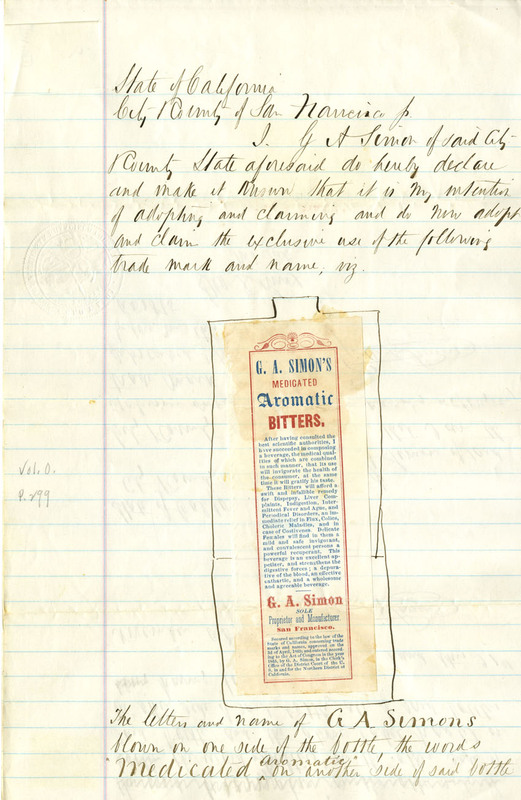 State of California
City & County of San Francisco
I. G A Simon of said City
& County State aforesaid do hereby declare
and make it known that it is my intention
of adopting and claiming and do now adopt
and claim the exclusive use of the following
trade mark and name, viz.
G. A. SIMON'S
MEDICATED
Aromatic
BITTERS.
After having consulted the
best scientific authorities, I
have succeeded in composing
a beverage, the medical qual-
ities of which are combined
in such manner, that its use
will invigorate the health of
the consumer, at the same
time it will gratify his taste.
These Bitters will afford a
swift and infallible remedy
for Dispepsy, Liver Com-
plaints, Indigestion, Inter-
mittent Fever and Ague, and
Periodical Disorders, an im-
mediate relief in Flux, Colics,
Choleric Maladies, and in
case of Costivness. Delicate
Females will find in them a
mild and safe invigorant,
and convalescent persons a
powerful recuperant. This
beverage is an excellent ap-
petizer, and strengthens the
digestive forces; a depura-
tive of the blood, an effective
cathartic, and a wholesome
and agreeable beverage.
G. A. Simon
SOLE
Proprietor and Manufacturer.
San Francisco.
Secured according to the law of the
State of California concerning trade
marks and names, approved on the
3d of April, 1863, and entered accord-
ing to the Act of Congress in the year
by G. A. Simon, in the Clerk's
Office of the District Court of the U.
S. in and for the Northern District of
California.
Vol. O.
P. 299
The letters and name of G A Simons
blown on one side of the bottle, the words
Aromatic
"Medicated on another side of said bottle